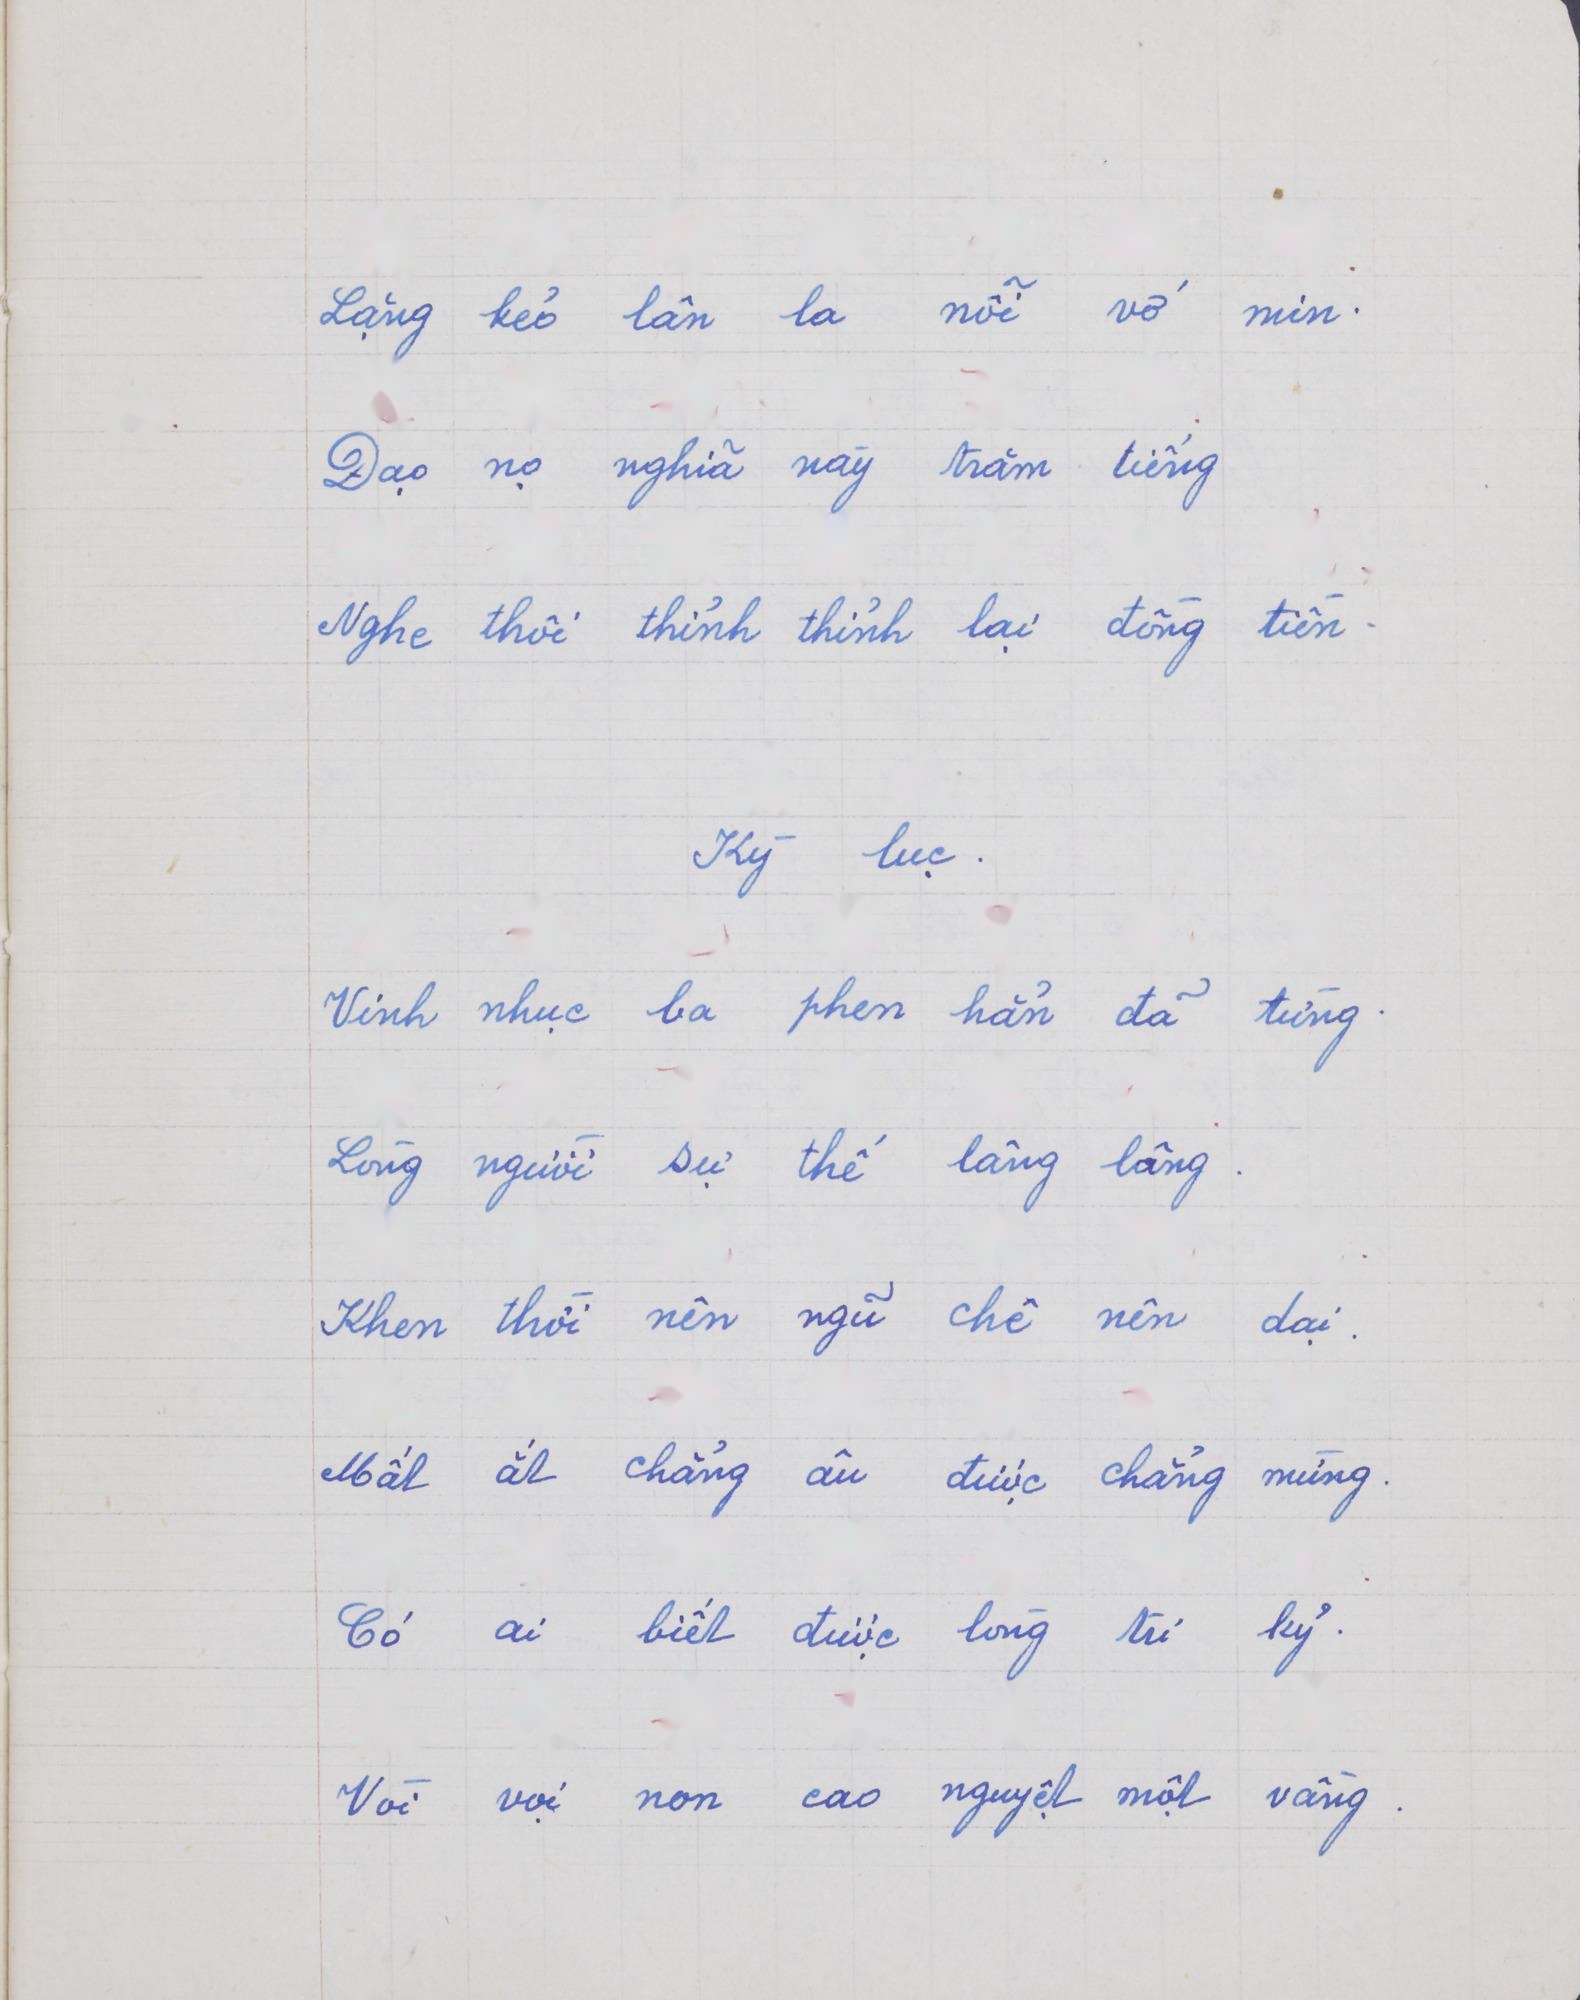 Lặng kẻo lân la nỗi vớ min.
Đạo nọ nghĩa này trăm tiếng
Nghe thôi thỉnh thỉnh lại đồng tiền.
Kỳ lục.
Vinh nhục ba phen hẳn đã từng.
Lòng người sự thế lâng lâng.
Khen thời nên ngũ chê nên dại.
Mất ắt chẳng âu được chẳng mừng.
Có ai biết được lòng tri kỷ.
Vòi vọi non cao nguyệt một vầng.